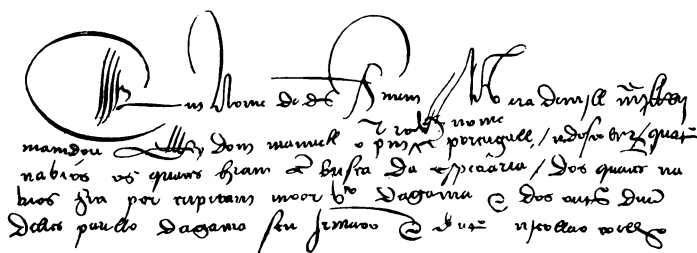 Em Nome de ds Amem Na era de mill iiij LRvij
nome
mamdou El Rey dom manuell o prim portugall / a descobrir quatro
nabios os quaes hiam em busca da especiaria / dos quaes na
bios hia por capitam moor Vco dagama e dos outros duu
deles paullo dagama seu Jrmaoo e doutro nicollao coelho